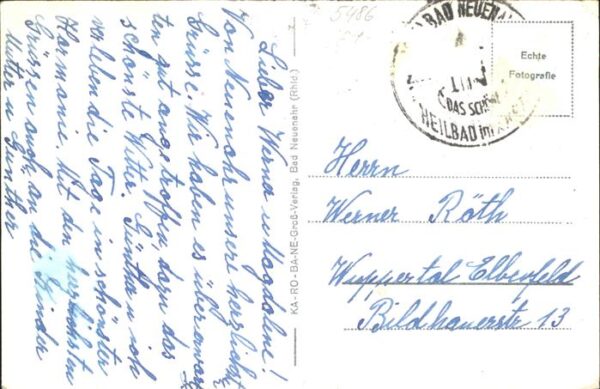 Lieber Werner u Magdalene!
Von Neuenahr unsere herzlichst
Grüsse. Wir haben es überaus
ten gut angetroffen dazu das
schönste Wetter. Günther u ich
verleben die Tage in schönster
Harmonie. Mit den herzlichsten
Grüssen auch an die Kinder
Mutter u Günther
KA-RO-BA-NE-Groß-Verlag, Bad Neuenahr (Rhld.)
5486
BAD NEUENAH
DAS SCHÖN
HEILBAD im
Echte
Fotografie
Herrn
Werner Röth
Wuppertal Elberfeld
Bildhauerstr 13